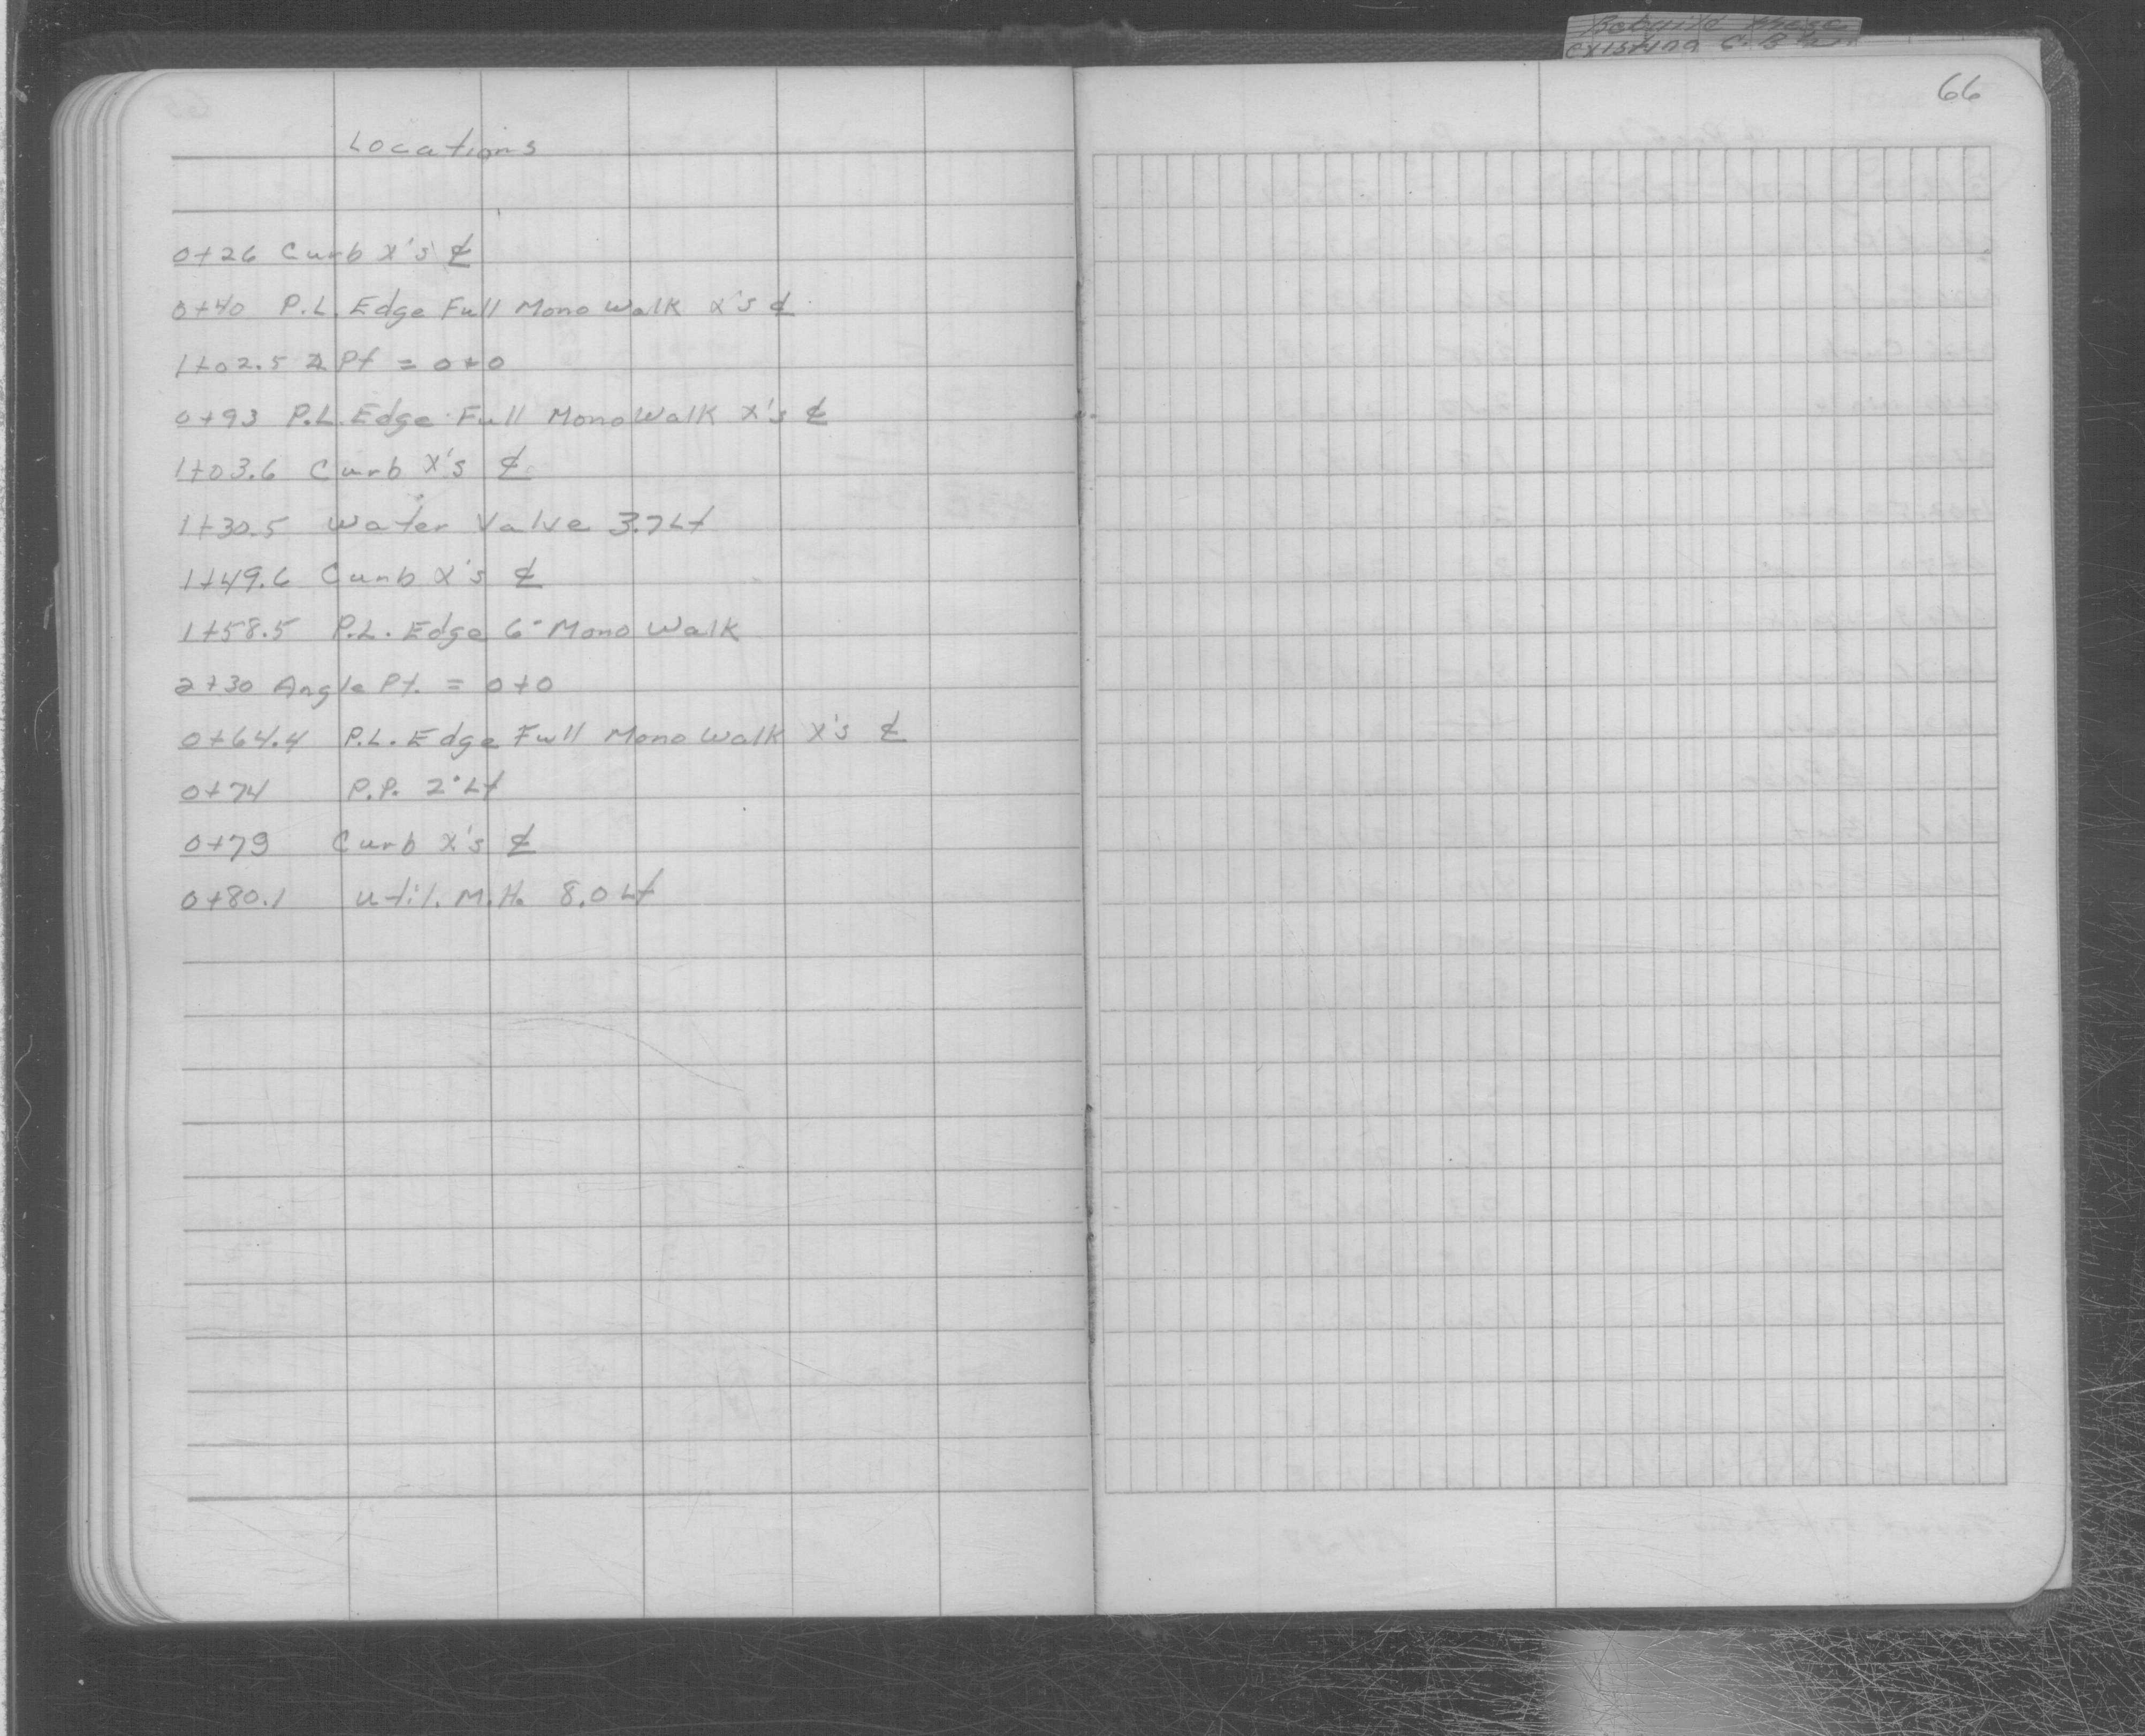 Rebuild these
existing C.B.'s
66
Locations
0+26 Curb X's ℄
0+40 P.L. Edge Full Mono Walk X's ℄
1+02.5 ∠ Pt = 0+0
0+93 P.L. Edge Full Mono Walk X's ℄
1+03.6 Curb X's ℄
1+30.5 Water Valve 3.7 Lt
1+49.6 Curb X's ℄
1+58.5 P.L. Edge 6' Mono Walk
2+30 Angle Pt. = 0+0
0+64.4 P.L. Edge Full Mono Walk X's ℄
0+74 P.P. 2' Lt
0+79 Curb X's ℄
0+80.1 Util. M.H. 8.0 Lt